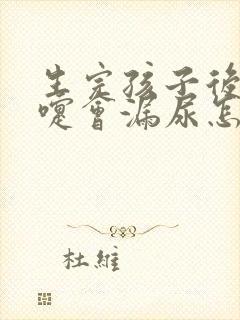 生完孩子後
嚏會漏尿怎
杜維